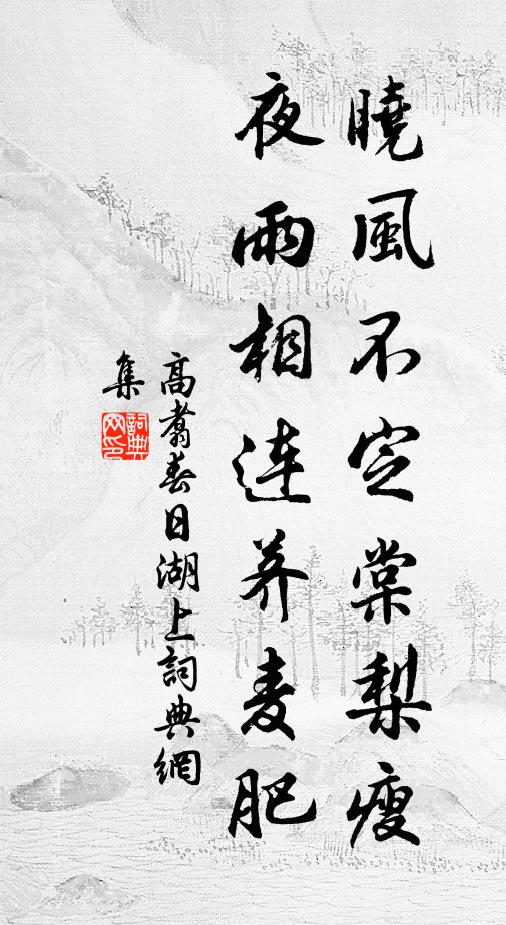 曉風不定棠梨瘦
夜雨相連荞麦肥
高翥春日湖上詞典網
集
詞典
网印